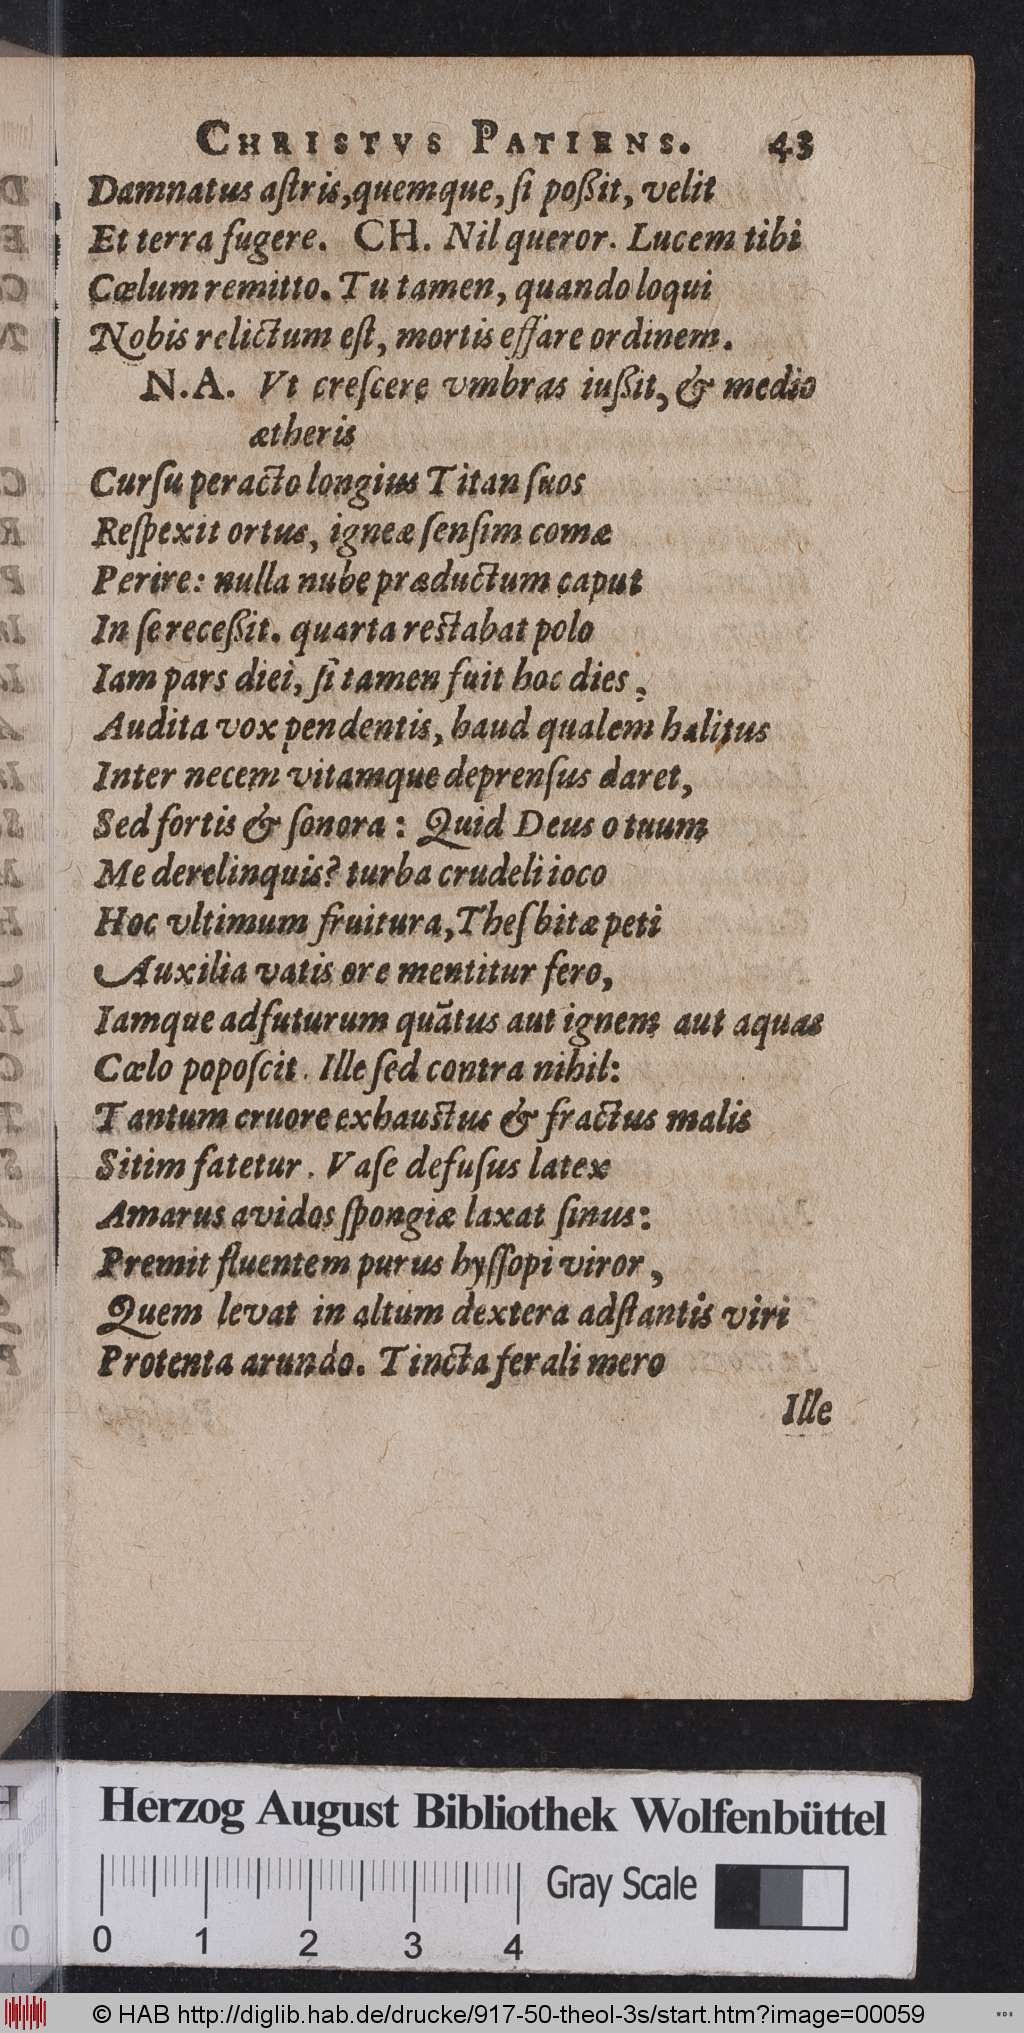 CHRISTVS PATIENS. 43
Damnatus aſtris, quemque, ſi poßit, velit
Et terra fugere. CH. Nil queror. Lucem tibi
Cœlum remitto. Tu tamen, quando loqui
Nobis relictum eſt, mortis effare ordinem.
N.A. Vt creſcere vmbras iußit, & medio
ætheris
Curſu peracto longius Titan ſuos
Reſpexit ortus, igneæ ſenſim comæ
Perire: nulla nube præductum caput
In ſe receßit. quarta restabat polo
Iam pars diei, ſi tamen fuit hoc dies,
Audita vox pendentis, haud qualem halitus
Inter necem vitamque deprenſus daret,
Sed fortis & ſonora: Quid Deus o tuum
Me derelinquis? turba crudeli ioco
Hoc vltimum fruitura, Theſbitæ peti
Auxilia vatis ore mentitur fero,
Iamque adfuturum quãtus aut ignem aut aquas
Cœlo popoſcit. Ille ſed contra nihil:
Tantum cruore exhaustus & fractus malis
Sitim fatetur. Vaſe defuſus latex
Amarus avidos ſpongiæ laxat ſinus:
Premit fluentem purus hyſſopi viror,
Quem levat in altum dextera adſtantis viri
Protenta arundo. Tincta ferali mero
Ille
Herzog August Bibliothek Wolfenbüttel
Gray Scale
0 0 1 2 3 4
© HAB http://diglib.hab.de/drucke/917-50-theol-3s/start.htm?image=00059